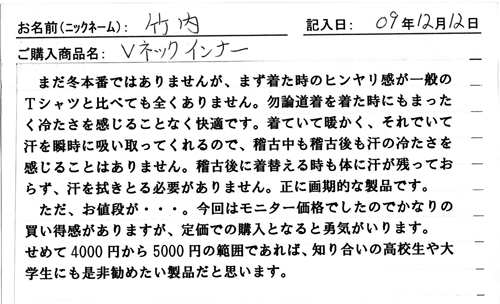 お名前(ニックネーム): 竹内 記入日: 09年12月12日
ご購入商品名: Vネックインナー
まだ冬本番ではありませんが、まず着た時のヒンヤリ感が一般の
Tシャツと比べても全くありません。勿論道着を着た時にもまった
く冷たさを感じることなく快適です。着ていて暖かく、それでいて
汗を瞬時に吸い取ってくれるので、稽古中も稽古後も汗の冷たさを
感じることはありません。稽古後に着替える時も体に汗が残ってお
らず、汗を拭きとる必要がありません。正に画期的な製品です。
ただ、お値段が・・・。今回はモニター価格でしたのでかなりの
買い得感がありますが、定価での購入となると勇気がいります。
せめて4000円から5000円の範囲であれば、知り合いの高校生や大
学生にも是非勧めたい製品だと思います。